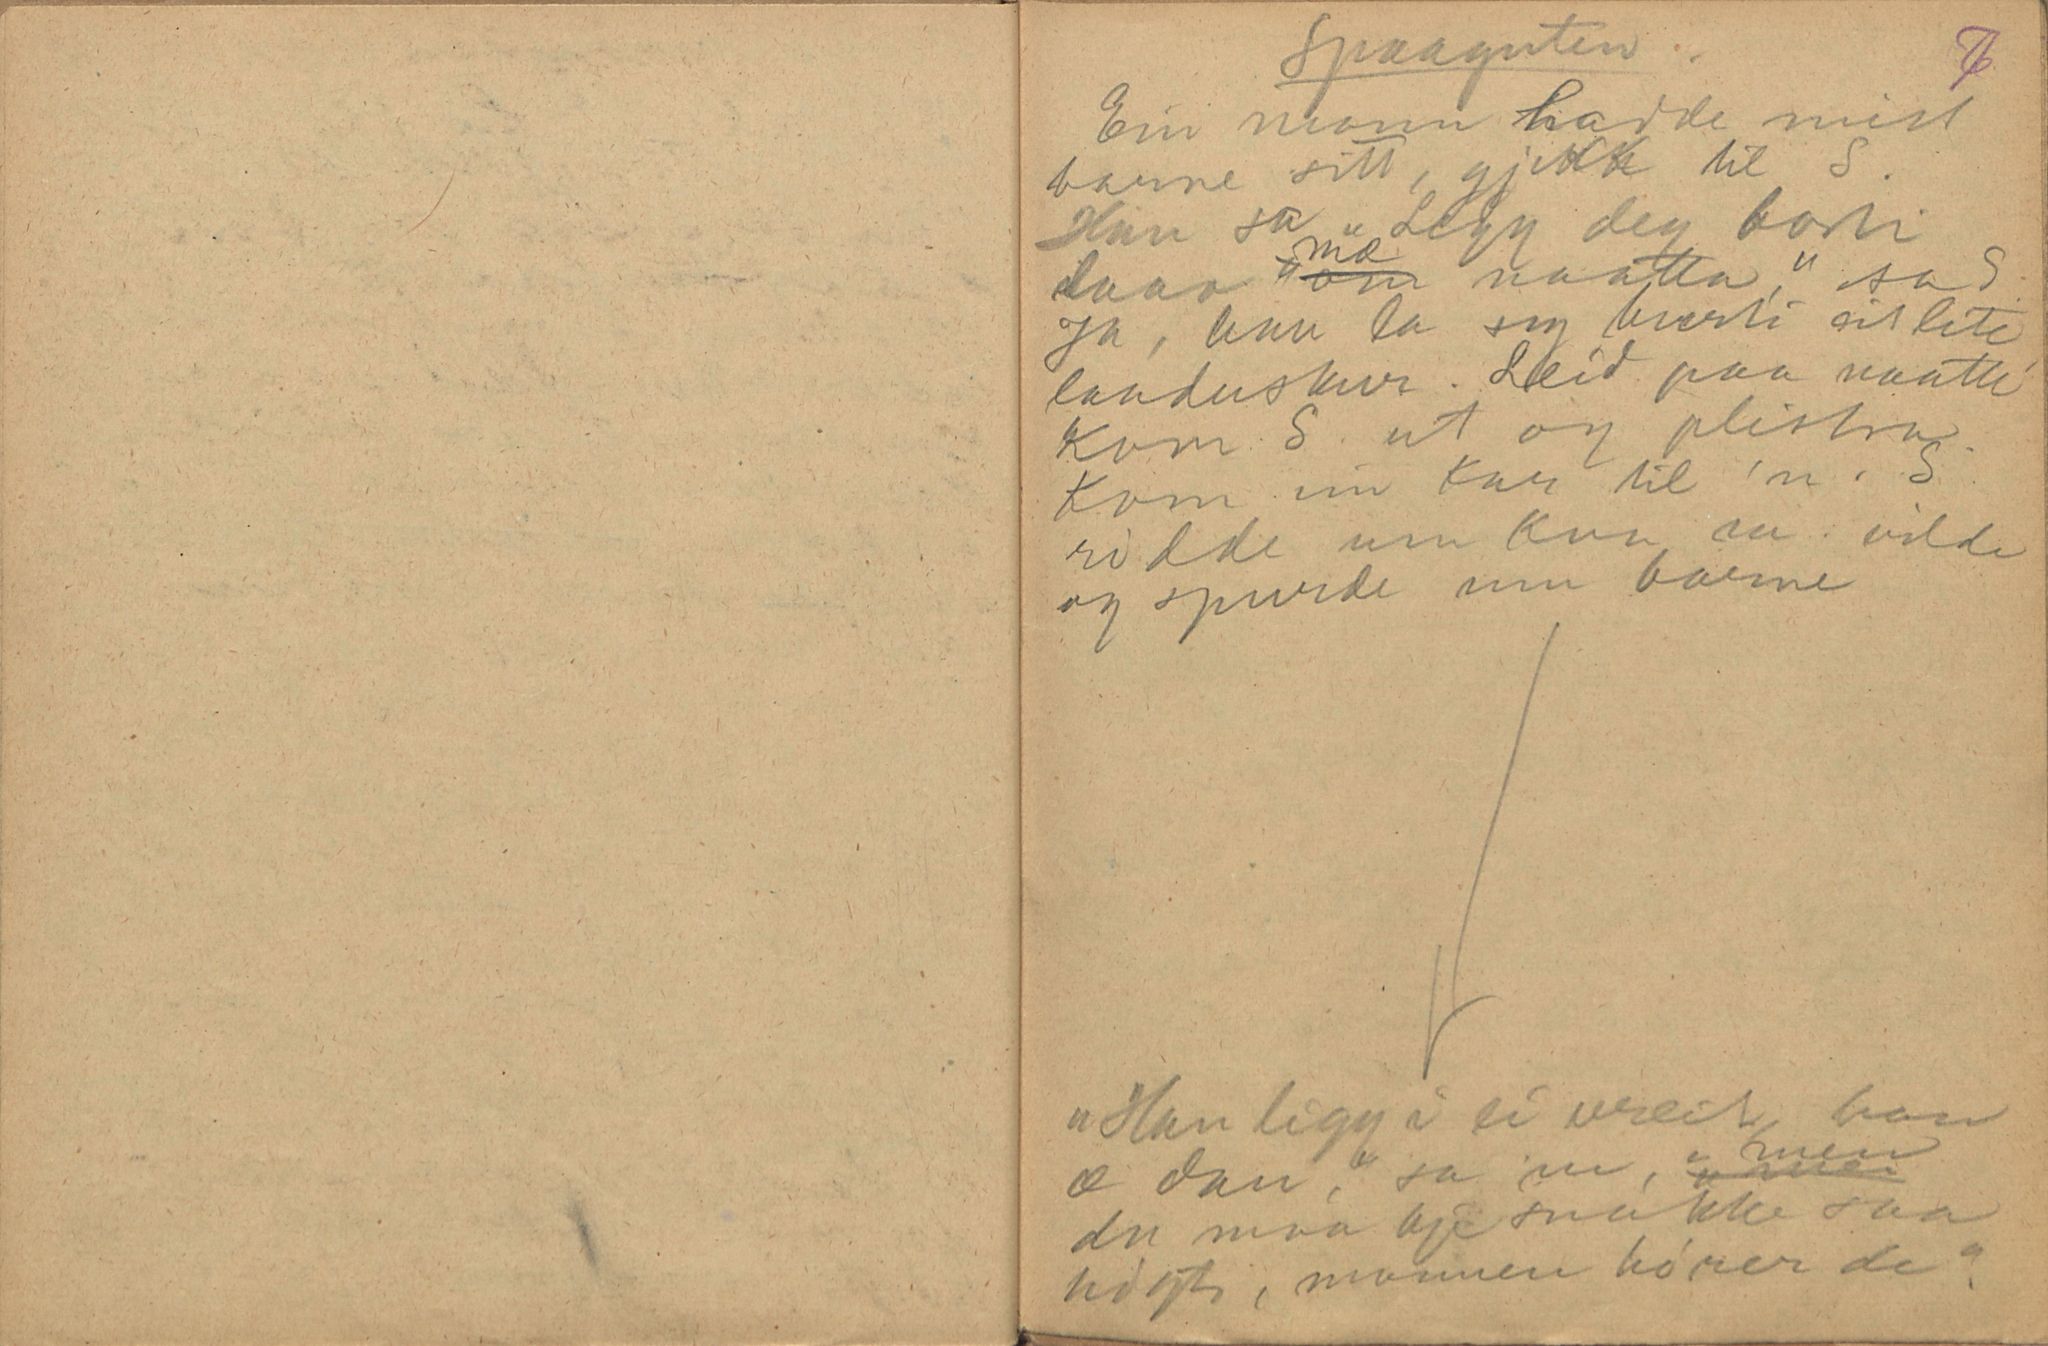 Spaaguten.
Ein mann hadde mist
barne sitt, gjekk til S.
Han sa „Legg deg borti
laao "om mæ naatta," sa S.
Ja, han la seg burti eit lite
laaduskur. Leid paa naatti
kom S. ut og plistra.
Kom ein kar til 'n. S.
ridde um kva en vilde
og spurde um barne
„Han ligg i ei vreit, han
æ dau," sa 'n, „men
du maa kje snakke saa
högt, mannen hörer de"